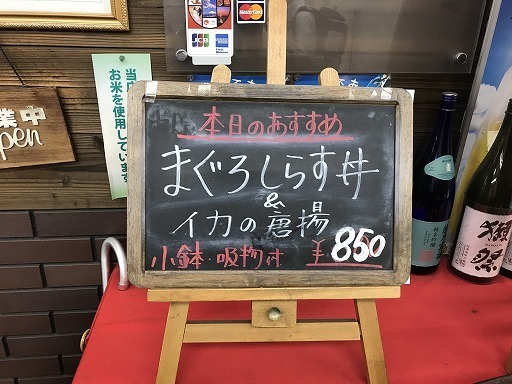 MasterCard
JCB
当店
お米を使用しています
業中
open
本日のおすすめ
まぐろしらす丼
&
イカの唐揚
小鉢・吸物付 ¥850
純米吟醸
獺祭